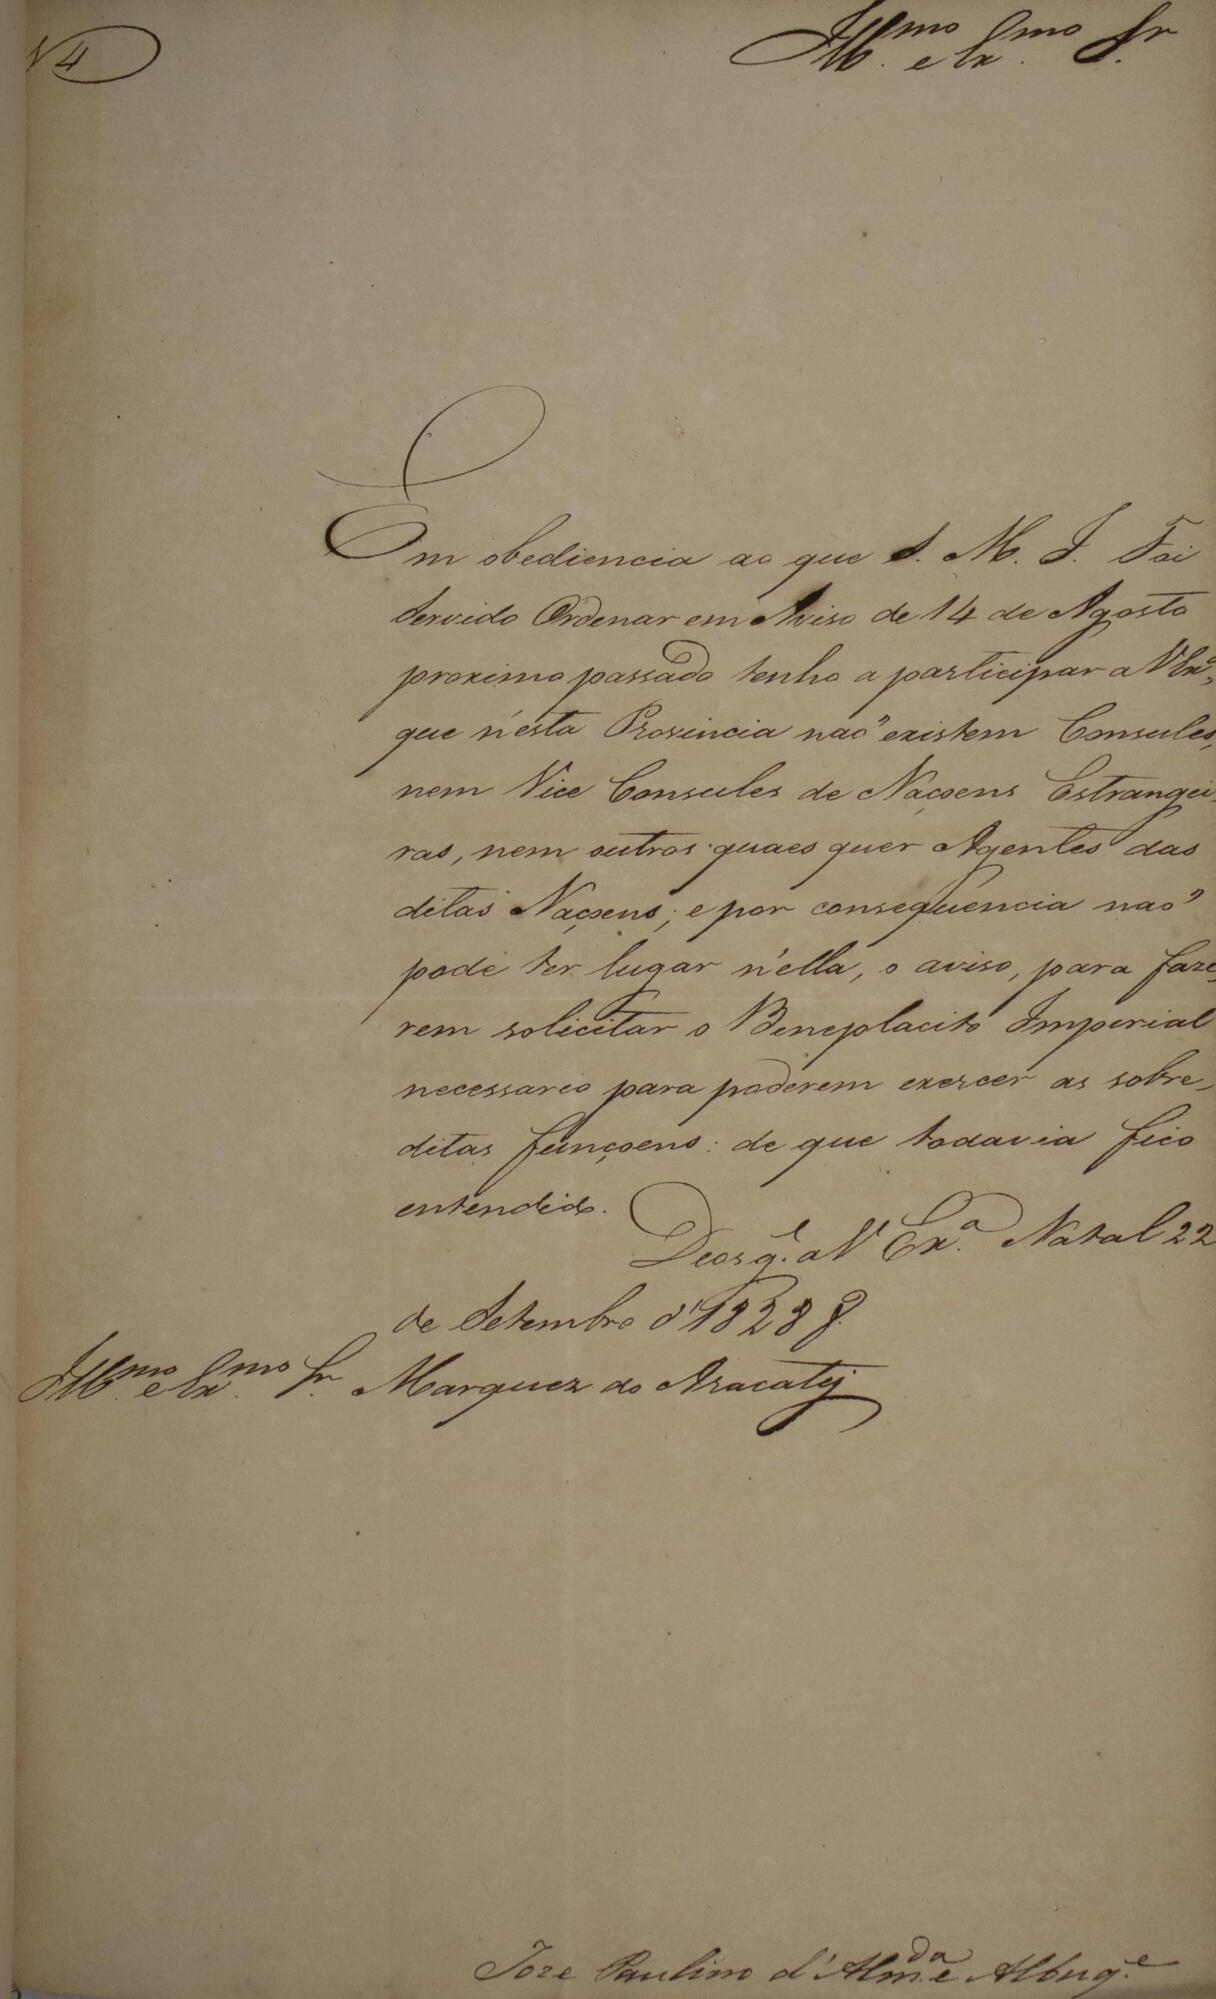 N 4
Ill.mo e Ex.mo Sr.
Em obediencia ao que S. M. I. Foi
Servido Ordenar em Aviso de 14 de Agosto
proximo passado tenho a participar a V Ex.a,
que n'esta Provincia naõ existem Consules,
nem Vice Consules de Naçoens Estrangei-
ras, nem outros quaes quer Agentes das
ditas Naçoens; e por consequencia naõ
pode ter lugar n'ella, o aviso, para faze-
rem solicitar o Beneplacito Imperial
necessario para poderem exercer as sobre-
ditas funçoens: de que todavia fico
entendido.
Deos g.e a V Ex.a Natal 22
de Setembro d'1828
Ill.mo e Ex.mo Sr. Marquez do Aracatÿ
Joze Paulino d'Alm.da e Albuq.e